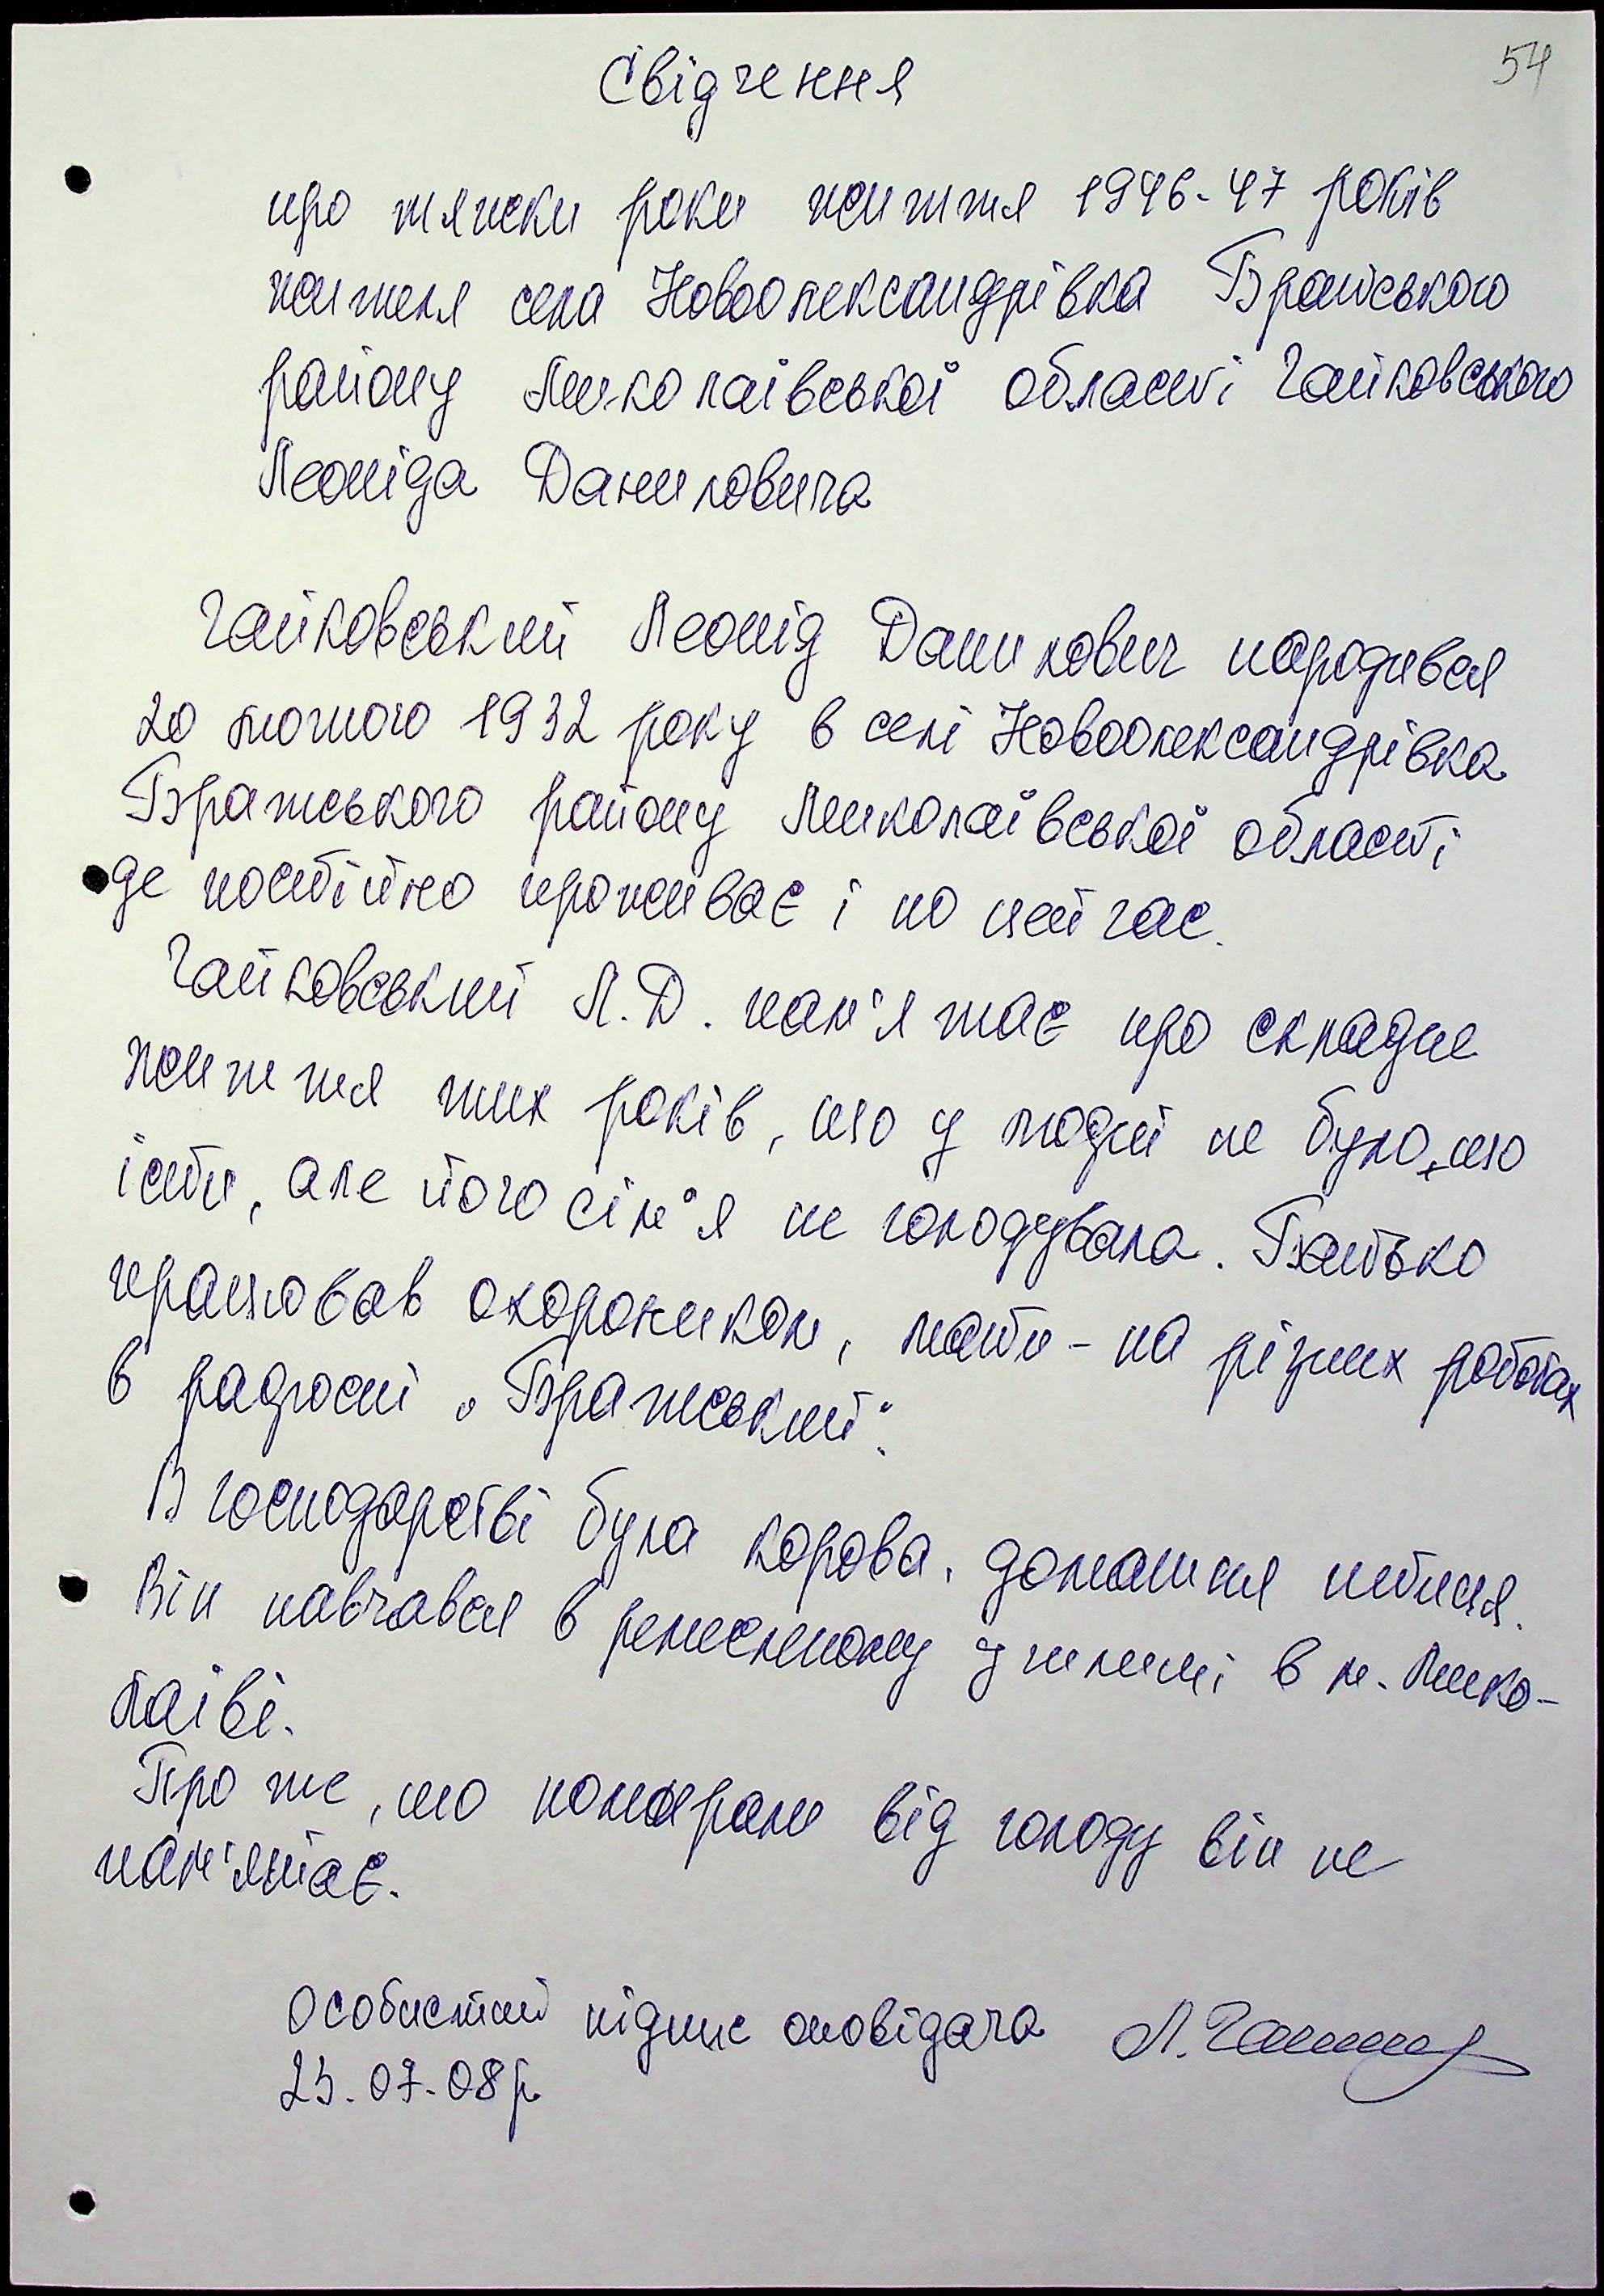 54
Свідчення
про тяжки роки життя 1946-47 років
жителя села Новоолександрівка Братського
району Миколаївської області Чайковського
Леоніда Даниловича
Чайковський Леонід Данилович народився
20 лютого 1932 року в селі Новоолександрівка
Братського району Миколаївської області
де постійно проживає і по цей час.
Чайковський Л.Д. пам'ятає про складне
життя тих років, що у людей не було, що
їсти, але його сім'я не голодувала. Батько
працював охоронником, мати - на різних роботах
в радгоспі "Братський".
В господарстві була корова, домашня птиця.
Він навчався в ремесленому училищі в м. Мико-
лаїві.
Про те, що помирали від голоду він не
пам'ятає.
Особистий підпис оповідача Л. Чайк
23.07.08р